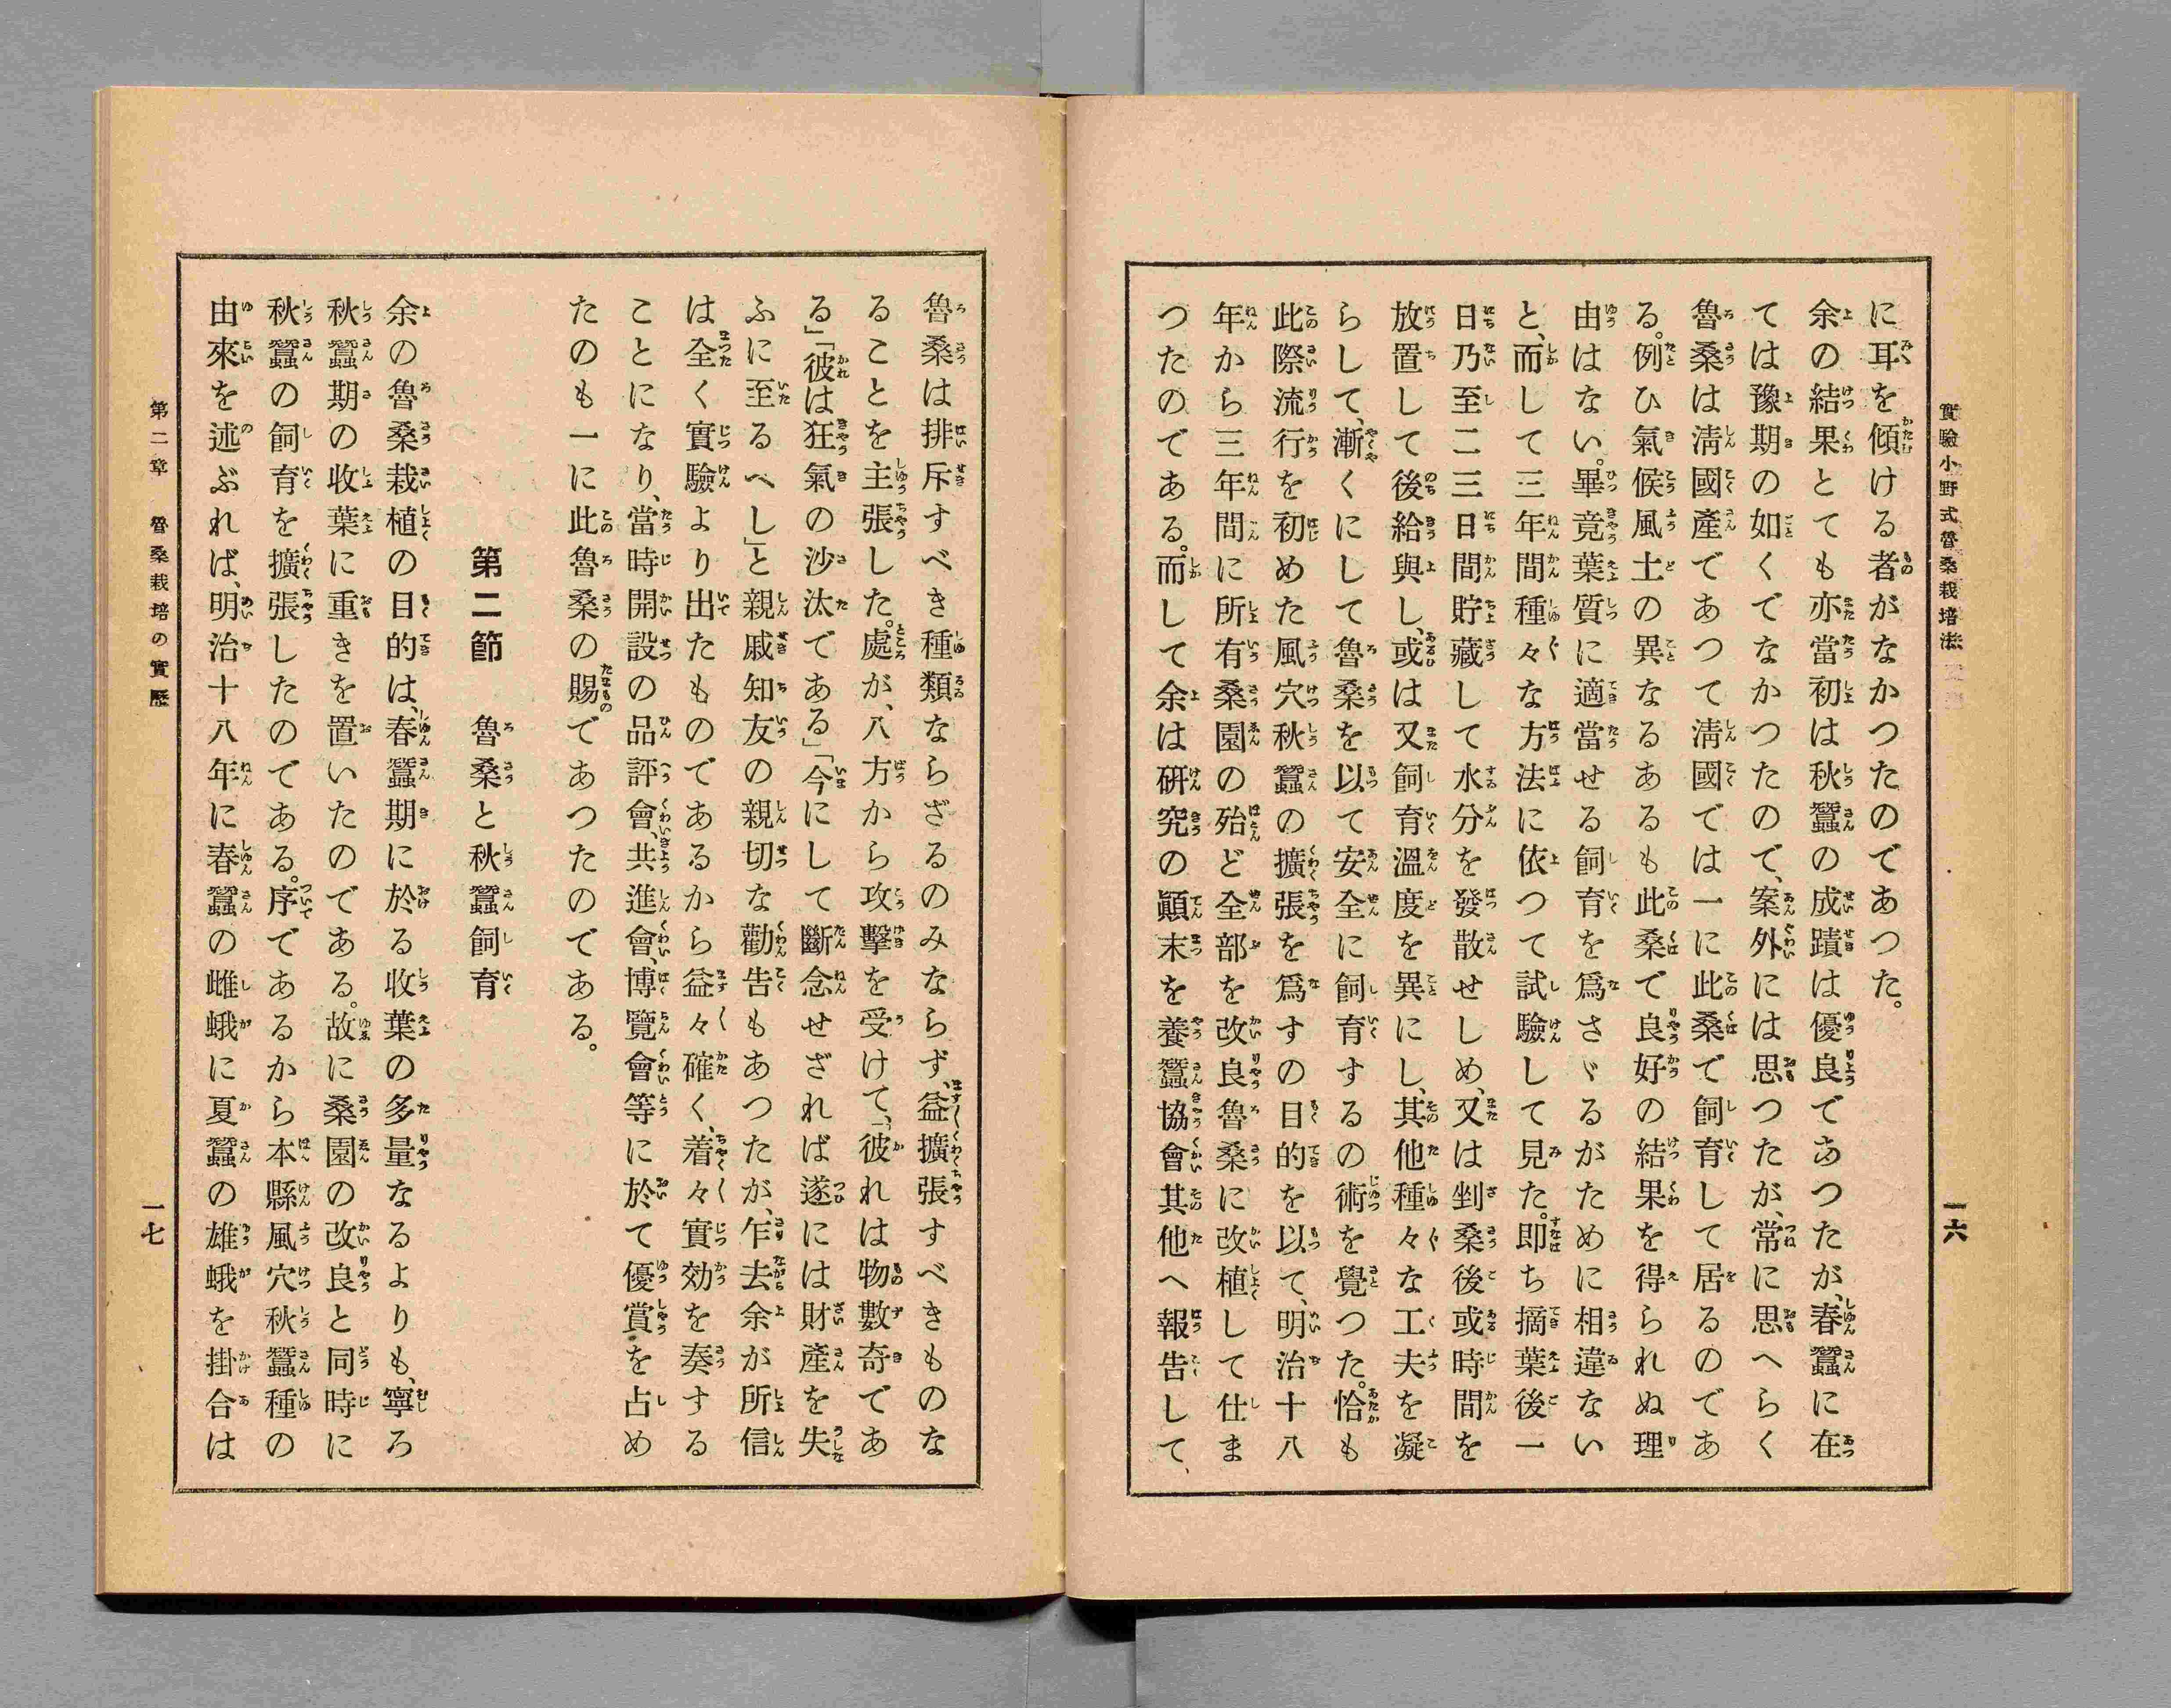 實驗小野式魯桑栽培法
一六
に耳を傾ける者がなかつたのであつた。
余の結果とても亦當初は秋蠶の成蹟は優良であつたが、春蠶に在
ては豫期の如くでなかつたので、案外には思つたが、常に思へらく
魯桑は淸國產であつて淸國では一に此桑で飼育して居るのであ
る。例ひ氣候風土の異なるあるも此桑で良好の結果を得られぬ理
由はない。畢竟葉質に適當せる飼育を爲さゞるがために相違ない
と、而して三年間種々な方法に依つて試驗して見た。即ち摘葉後一
日乃至二三日間貯藏して水分を發散せしめ、又は剉桑後或時間を
放置して後給與し、或は又飼育溫度を異にし、其他種々な工夫を凝
らして、漸くにして魯桑を以て安全に飼育するの術を覺つた。恰も
此際流行を初めた風穴秋蠶の擴張を爲すの目的を以て、明治十八
年から三年間に所有桑園の殆ど全部を改良魯桑に改植して仕ま
つたのである。而して余は硏究の顚末を養蠶協會其他へ報告して、
魯桑は排斥すべき種類ならざるのみならず、益擴張すべきものな
ることを主張した。處が、八方から攻擊を受けて、「彼れは物數奇であ
る」「彼は狂氣の沙汰である」「今にして斷念せざれば遂には財產を失
ふに至るへし」と親戚知友の親切な勸告もあつたが、乍去余が所信
は全く實驗より出たものであるから益々確く、着々實効を奏する
ことになり、當時開設の品評會、共進會、博覽會等に於て優賞を占め
たのも一に此魯桑の賜であつたのである。
第二節　魯桑と秋蠶飼育
余の魯桑栽植の目的は、春蠶期に於る收葉の多量なるよりも、寧ろ
秋蠶期の收葉に重きを置いたのである。故に桑園の改良と同時に
秋蠶の飼育を擴張したのである。序であるから本縣風穴秋蠶種の
由來を述ぶれば、明治十八年に春蠶の雌蛾に夏蠶の雄蛾を掛合は
第二章　魯桑栽培の實歷
一七